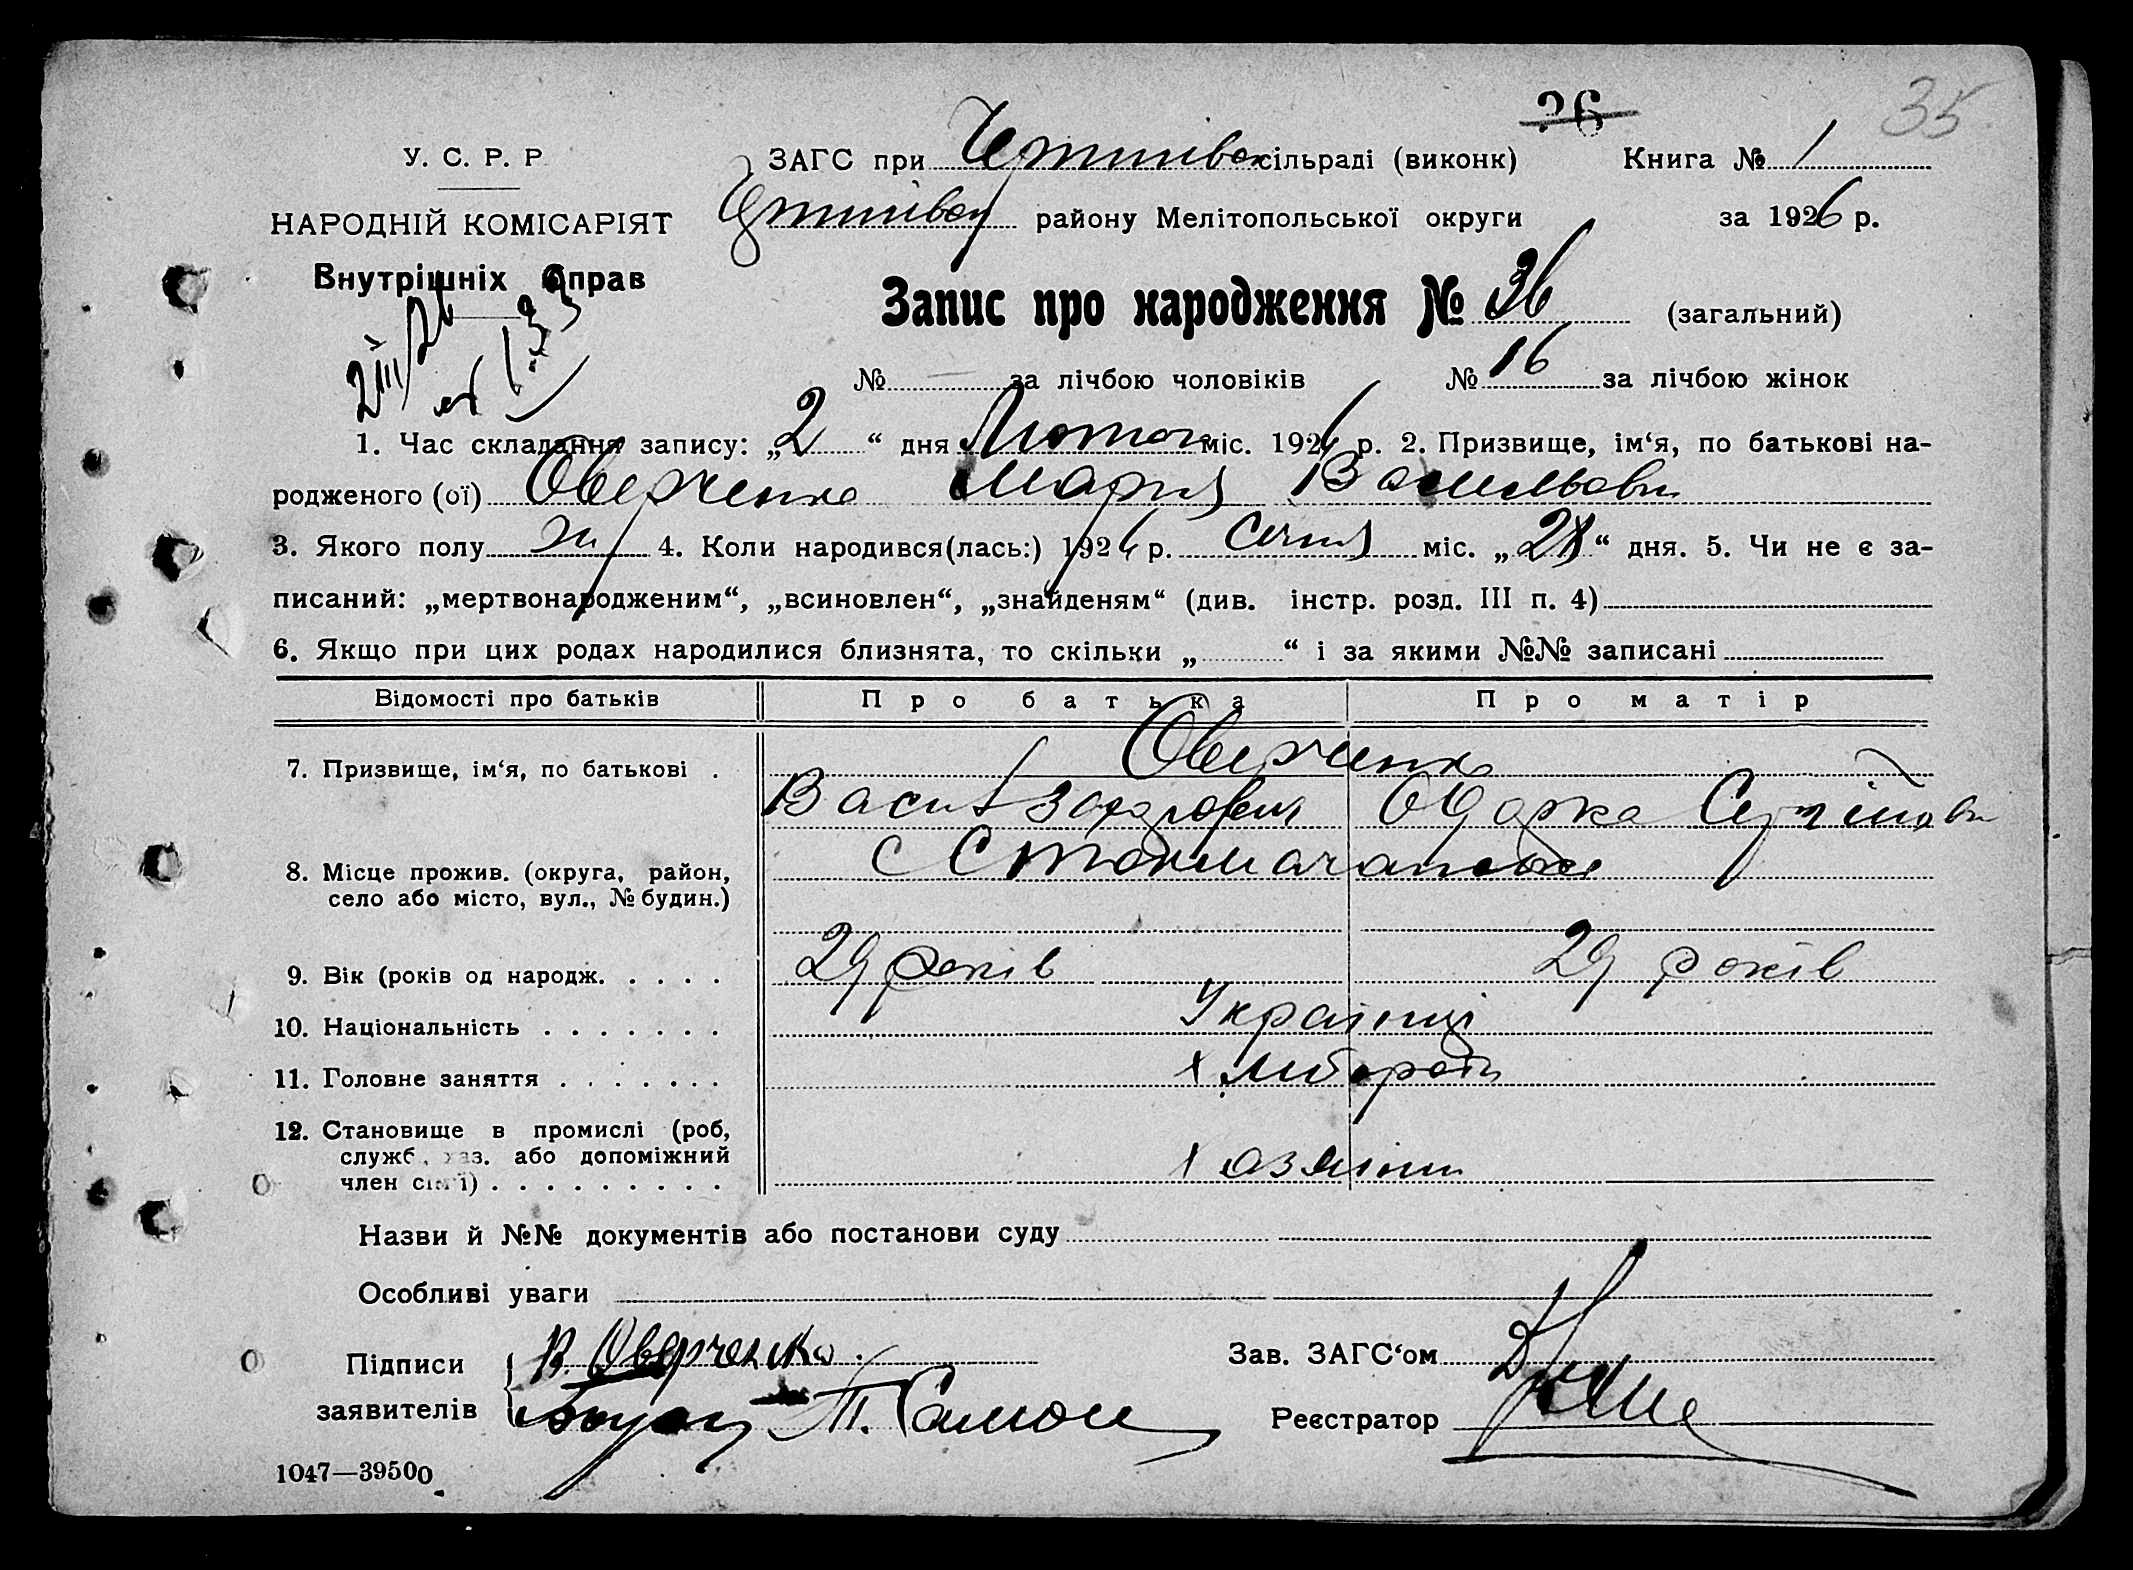 26 35
У. С. Р. Р
ЗАГС при сільраді (виконк) Книга № 1
НАРОДНІЙ КОМІСАРІЯТ
району Мелітопольської округи за 1926 р.
Внутрішніх Справ
Запис про народження № 36 (загальний)
№ — за лічбою чоловіків № 16 за лічбою жінок
1. Час складання запису: „2“ дня Лютого міс. 1926 р. 2. Призвище, ім‘я, по батькові на-
родженого (ої) Оверченко Мария
3. Якого полу ж 4. Коли народився(лась:) 1926 р. Січня міс. „28“ дня. 5. Чи не є за-
писаний: „мертвонародженим“, „всиновлен“, „знайденям“ (див. інстр. розд. III п. 4)
6. Якщо при цих родах народилися близнята, то скільки „ “ і за якими №№ записані
Відомості про батьків Про батька Про матір
7. Призвище, ім‘я, по батькові . Оверченко
Одарка
8. Місце прожив. (округа, район,
село або місто, вул., № будин.)
9. Вік (років од народж. . . . . 29 років 29 років
10. Національність . . . . . . . Українці
11. Головне заняття . . . . . . . Хлібороби
12. Становище в промислі (роб,
служб., хаз. або допоміжний
член сім‘ї) . . . . . . . . . Хазяіни
Назви й №№ документів або постанови суду
Особливі уваги
Підписи В. Оверченко Зав. ЗАГС‘ом
заявителів Т. Самой Реєстратор
1047—39500